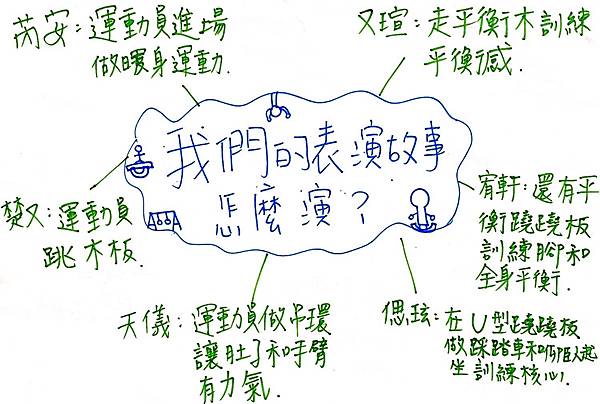 我們的表演故事
怎麼演？
芮安：運動員進場
做暖身運動.
又瑄：走平衡木訓練
平衡感.
宥軒：還有平
衡蹺蹺板
訓練腳和
全身平衡.
偲玹：在U型蹺蹺板
做踩踏車和仰臥起
坐訓練核心.
天儀：運動員做吊環
讓肚子和手臂
有力氣.
楚又：運動員
跳木板.